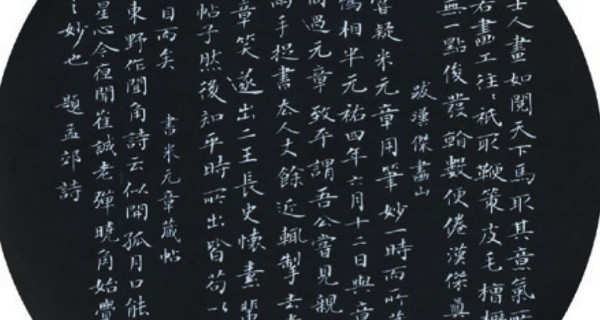 士人畫如閱天下馬取其意氣所
若畫工往往祇取鞭策皮毛槽櫪
無一點俊發翰數便倦漢傑真
跋漢傑畫山
嘗疑米元章用筆妙一時而所藏
偽相半元祐四年六月十二日與章
同過元章致平謂吾公嘗見親
高手捉書去人丈餘近輒掣去
章笑遂出二王長史懷素輩
帖子然後知平時所出皆苟以
目而矣 書米元章藏帖
東野作聞角詩云似開孤月口能
星心今夜聞崔誠老彈曉角始覺
妙也 題孟郊詩